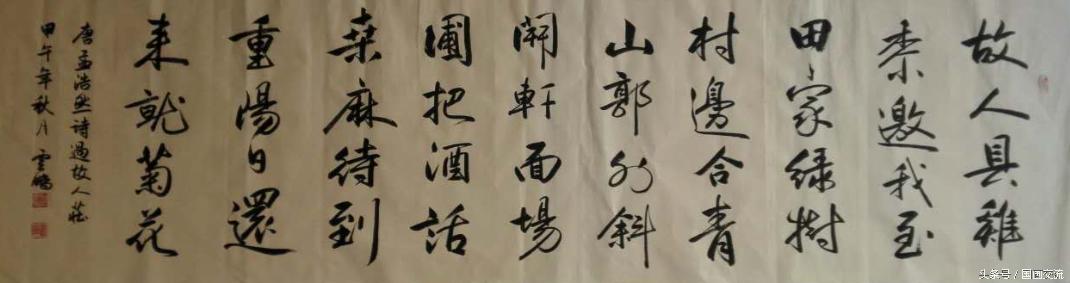 故人具雞
黍邀我至
田家綠樹
村邊合青
山郭外斜
開軒面場
圃把酒話
桑麻待到
重陽日還
来就菊花
唐孟浩然詩過故人莊
甲午年秋月 雲鵬
头条号 / 国画交流